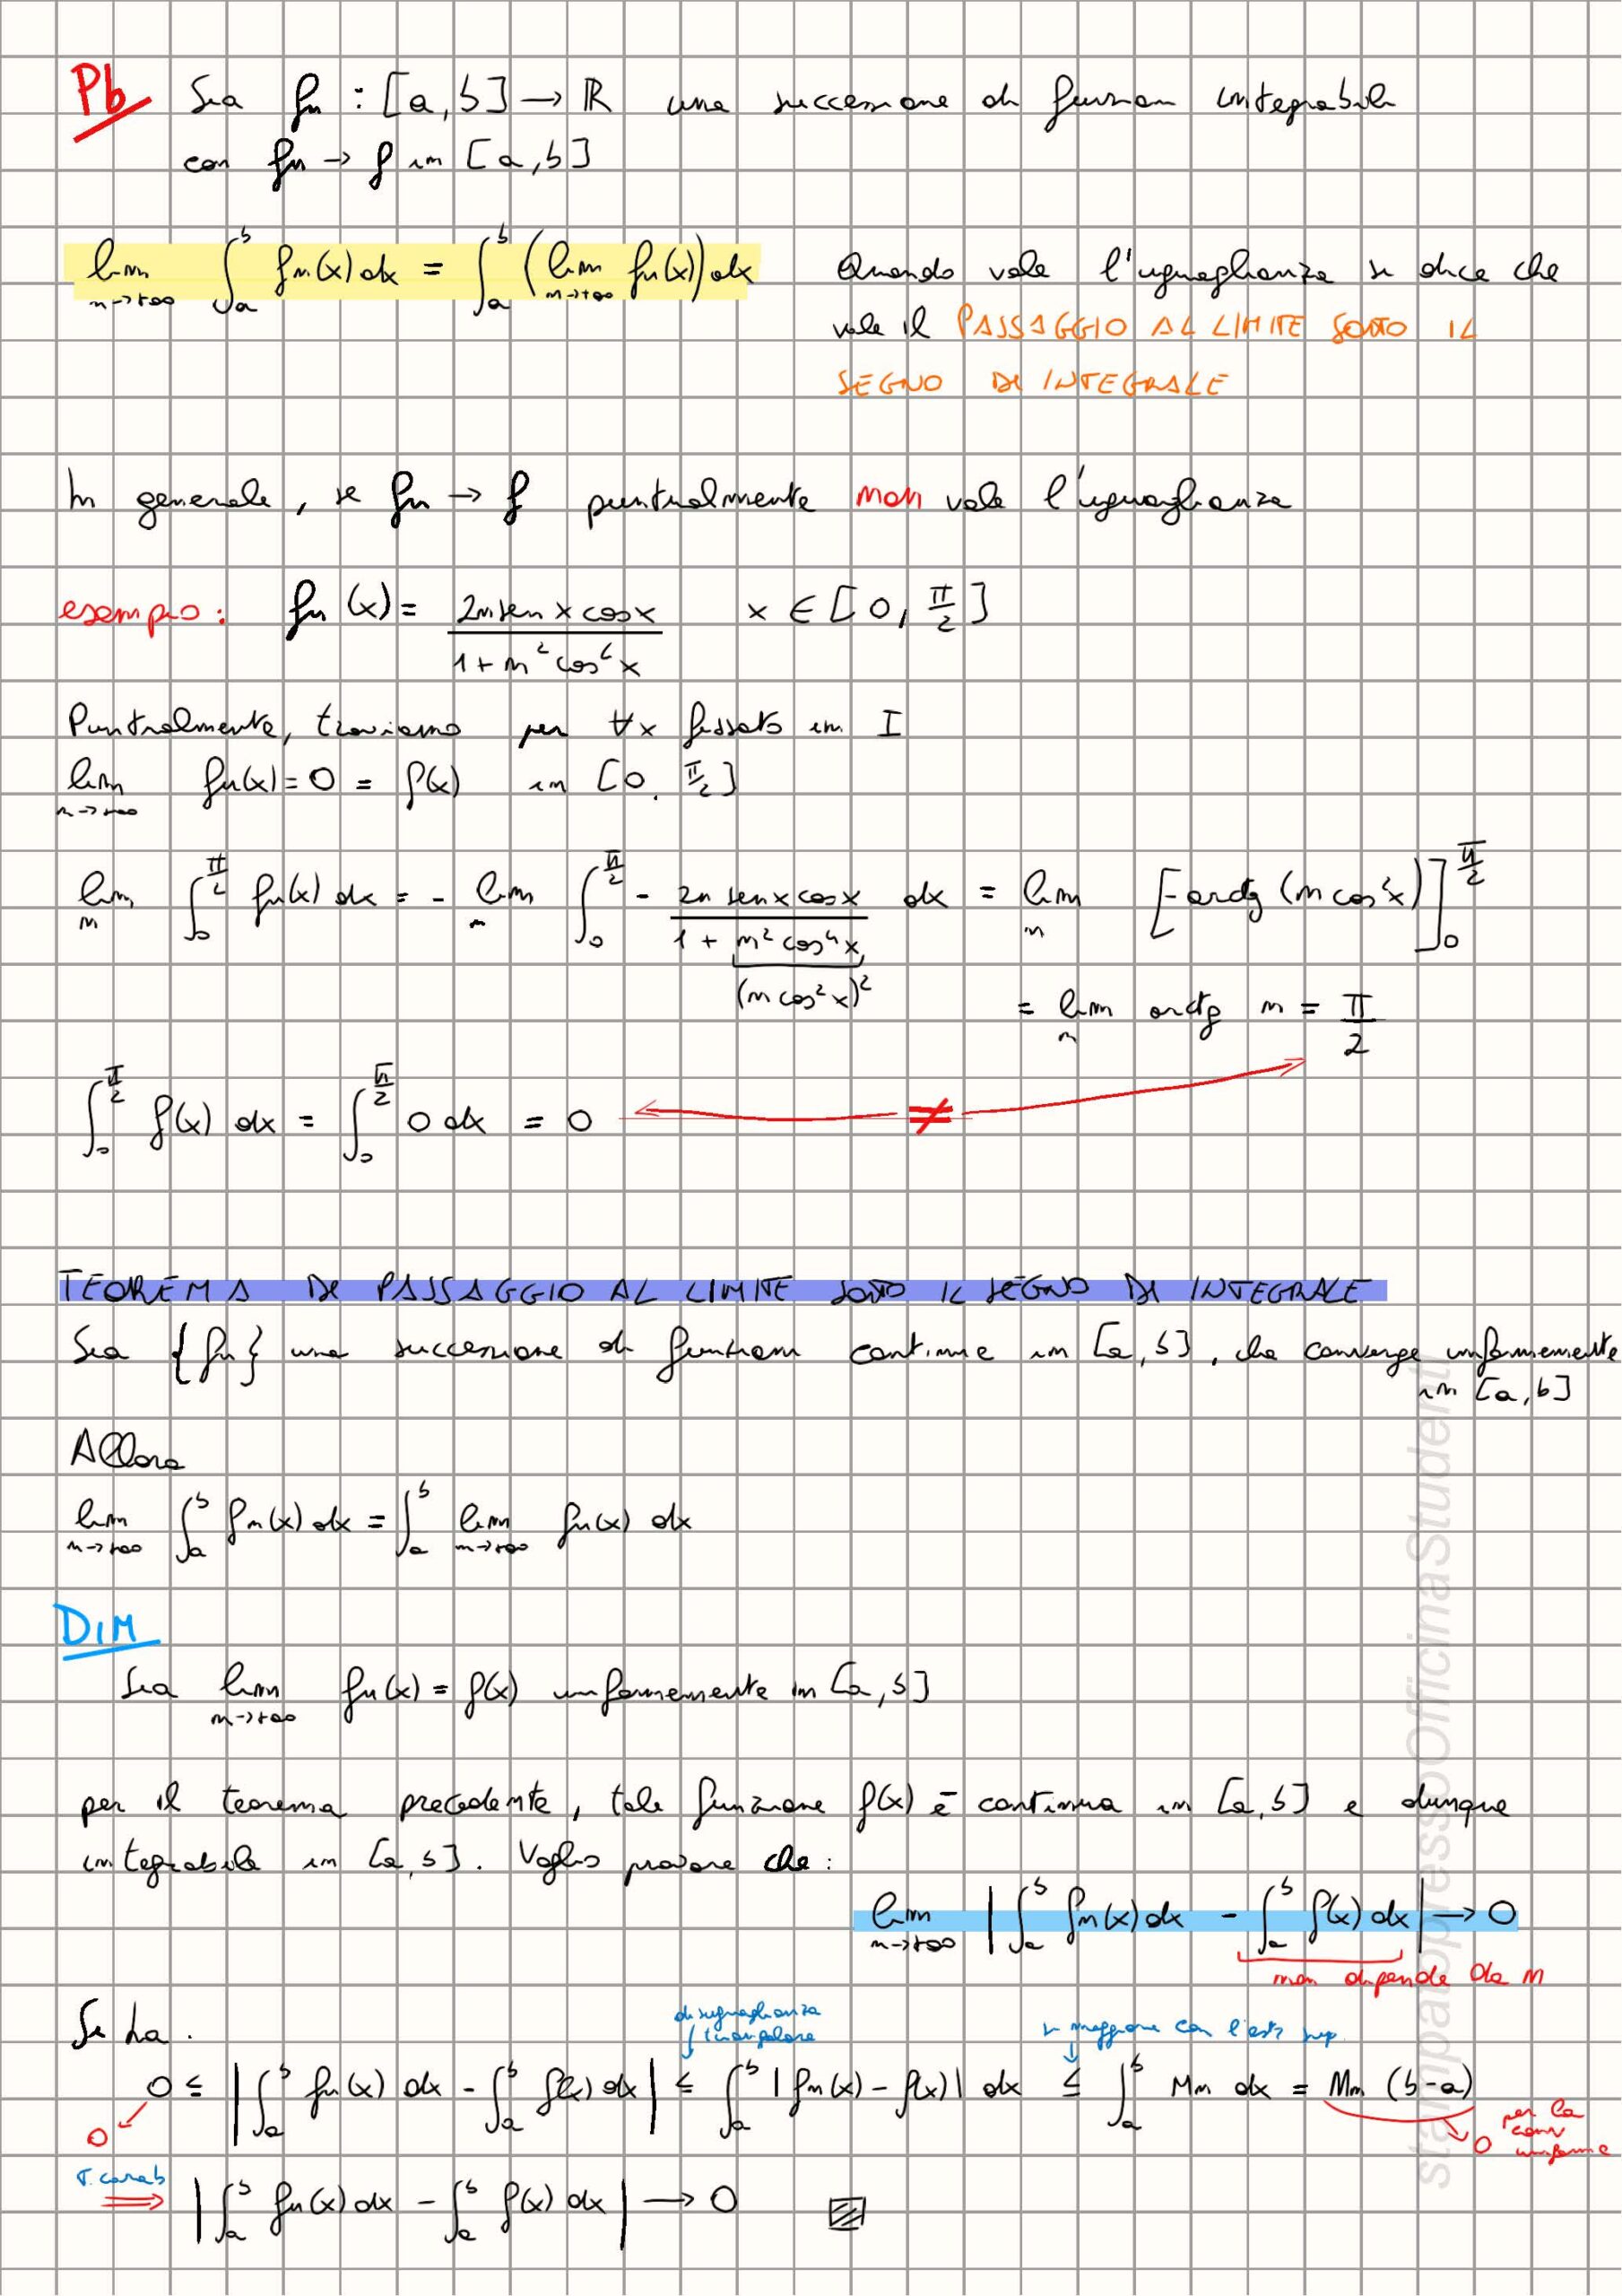 Pb Sia fn : [a,b] → ℝ una successione di funzioni integrabili
con fn → f in [a,b]
lim n→+∞ ∫_a^b fn(x) dx = ∫_a^b (lim n→+∞ fn(x)) dx Quando vale l'uguaglianza si dice che
vale il PASSAGGIO AL LIMITE SOTTO IL
SEGNO DI INTEGRALE
In generale, se fn → f puntualmente non vale l'uguaglianza
esempio: fn(x) = (2n sen x cos x)/(1 + n² cos⁴ x) x ∈ [0, π/2]
Puntualmente, troviamo per ∀x fissato in I
lim n→+∞ fn(x) = 0 = f(x) in [0, π/2]
lim n ∫_0^{π/2} fn(x) dx = - lim n ∫_0^{π/2} - (2n sen x cos x)/(1 + n² cos⁴ x) dx = lim n [-arctg (n cos² x)]_0^{π/2}
(n cos² x)²
= lim n arctg n = π/2
∫_0^{π/2} f(x) dx = ∫_0^{π/2} 0 dx = 0 ≠
TEOREMA DI PASSAGGIO AL LIMITE SOTTO IL SEGNO DI INTEGRALE
Sia {fn} una successione di funzioni continue in [a,b], che converge uniformemente
in [a,b]
Allora
lim n→+∞ ∫_a^b fn(x) dx = ∫_a^b lim n→+∞ fn(x) dx
DIM
Sia lim n→+∞ fn(x) = f(x) uniformemente in [a,b]
per il teorema precedente, tale funzione f(x) è continua in [a,b] e dunque
integrabile in [a,b]. Voglio provare che:
lim n→+∞ |∫_a^b fn(x) dx - ∫_a^b f(x) dx| → 0
non dipende da n
Si ha.
disuguaglianza
triangolare
si maggiora con l'estr sup.
0 ≤ |∫_a^b fn(x) dx - ∫_a^b f(x) dx| ≤ ∫_a^b |fn(x) - f(x)| dx ≤ ∫_a^b Mn dx = Mn (b-a)
0
0 per la
conv
uniforme
T. carab
⟹ |∫_a^b fn(x) dx - ∫_a^b f(x) dx| → 0
stampatopressoOfficinaStudenti